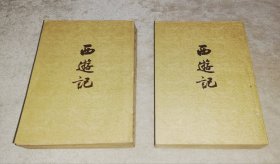 西遊記
西遊記